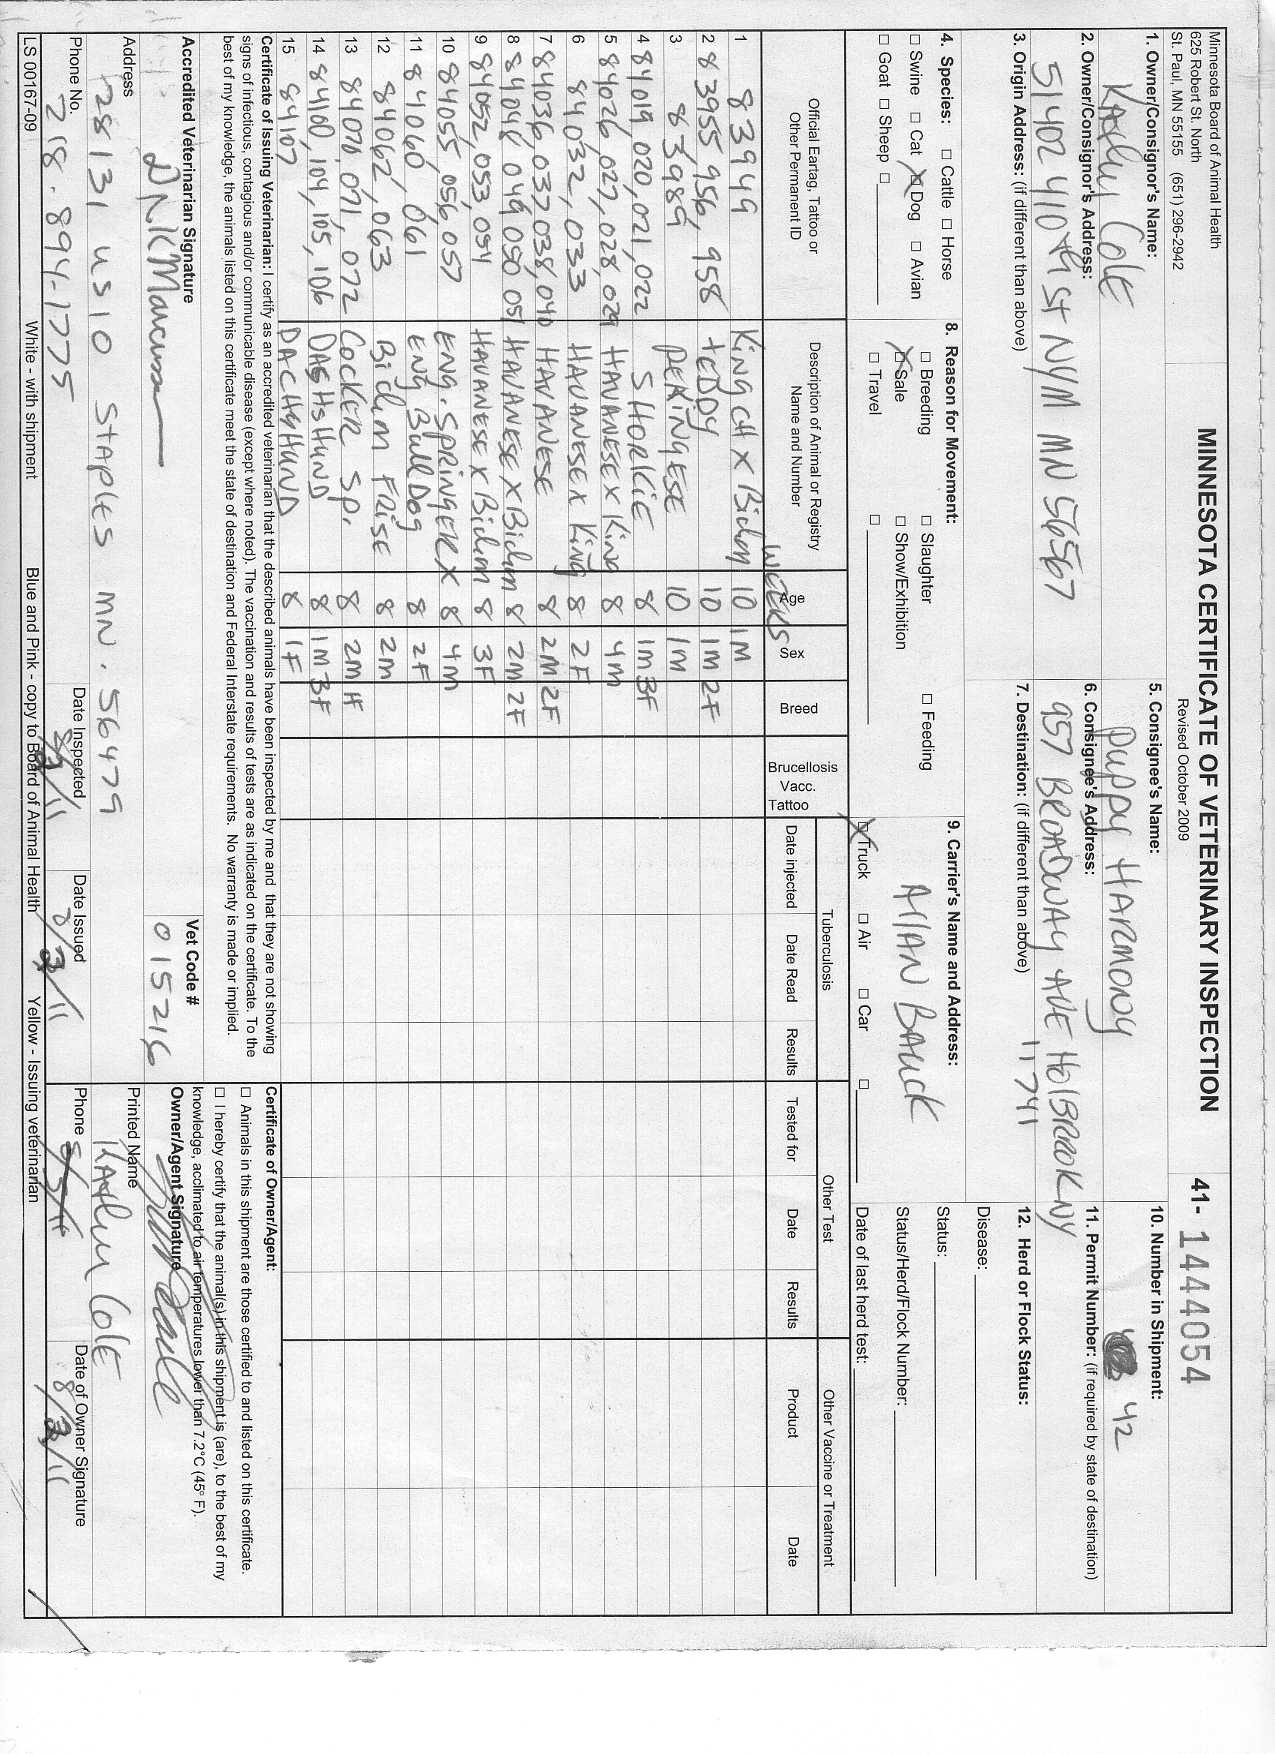 Minnesota Board of Animal Health
625 Robert St. North
St. Paul, MN 55155 (651) 296-2942
MINNESOTA CERTIFICATE OF VETERINARY INSPECTION
Revised October 2009
41- 1444054
1. Owner/Consignor's Name:
Kathy Cole
5. Consignee's Name:
Puppy HARMONY
10. Number in Shipment:
42
2. Owner/Consignor's Address:
51402 410th St NYM MN 56567
6. Consignee's Address:
957 BROADWAY AVE HOLBROOK NY
11741
11. Permit Number: (if required by state of destination)
3. Origin Address: (if different than above)
7. Destination: (if different than above)
12. Herd or Flock Status:
Disease:
Status:
Status/Herd/Flock Number:
Date of last herd test:
4. Species: ☐ Cattle ☐ Horse
☐ Swine ☐ Cat ☒ Dog ☐ Avian
☐ Goat ☐ Sheep ☐
8. Reason for Movement:
☐ Breeding ☐ Slaughter ☐ Feeding
☒ Sale ☐ Show/Exhibition
☐ Travel ☐
9. Carrier's Name and Address:
AllAN BAUCK
☒ Truck ☐ Air ☐ Car ☐
Official Eartag, Tattoo or Other Permanent ID
Description of Animal or Registry Name and Number
Age
WEEKS
Sex
Breed
Brucellosis Vacc. Tattoo
Tuberculosis
Date injected
Date Read
Results
Other Test
Tested for
Date
Results
Other Vaccine or Treatment
Product
Date
1 83949 King CH X Bichon 10 1M
2 83955 956, 958 TEDDY 10 1M 2F
3 83989 PEKINGESE 10 1M
4 84019 020, 021, 022 SHORKIE 8 1M 3F
5 84026, 027, 028, 029 HAVANESE X King 8 4M
6 84032, 033 HAVANESE X King 8 2F
7 84036, 037 038, 040 HAVANESE 8 2M 2F
8 84048, 049 050 051 HAVANESE X Bichon 8 2M 2F
9 84052, 053, 054 HAVANESE X Bichon 8 3F
10 84055, 056, 057 ENG. SPRINGER X 8 4M
11 84060, 061 ENG BullDog 8 2F
12 84062, 063 Bichon FRISE 8 2M
13 84070, 071, 072 COCKER SP. 8 2M 1F
14 84100, 104, 105, 106 DASHSHUND 8 1M 3F
15 84107 DACHSHUND 8 1F
Certificate of Issuing Veterinarian: I certify as an accredited veterinarian that the described animals have been inspected by me and that they are not showing
signs of infectious, contagious and/or communicable disease (except where noted). The vaccination and results of tests are as indicated on the certificate. To the
best of my knowledge, the animals listed on this certificate meet the state of destination and Federal Interstate requirements. No warranty is made or implied.
Certificate of Owner/Agent:
☐ Animals in this shipment are those certified to and listed on this certificate.
☐ I hereby certify that the animal(s) in this shipment is (are), to the best of my
knowledge, acclimated to air temperatures lower than 7.2°C (45° F).
Accredited Veterinarian Signature
Vet Code #
015216
Owner/Agent Signature
Address
28131 US 10 Staples MN. 56479
Printed Name
Kathy Cole
Phone No.
218.894-1775
Date Inspected
Date Issued
Phone
Date of Owner Signature
LS 00167-09 White - with shipment Blue and Pink - copy to Board of Animal Health Yellow - Issuing veterinarian